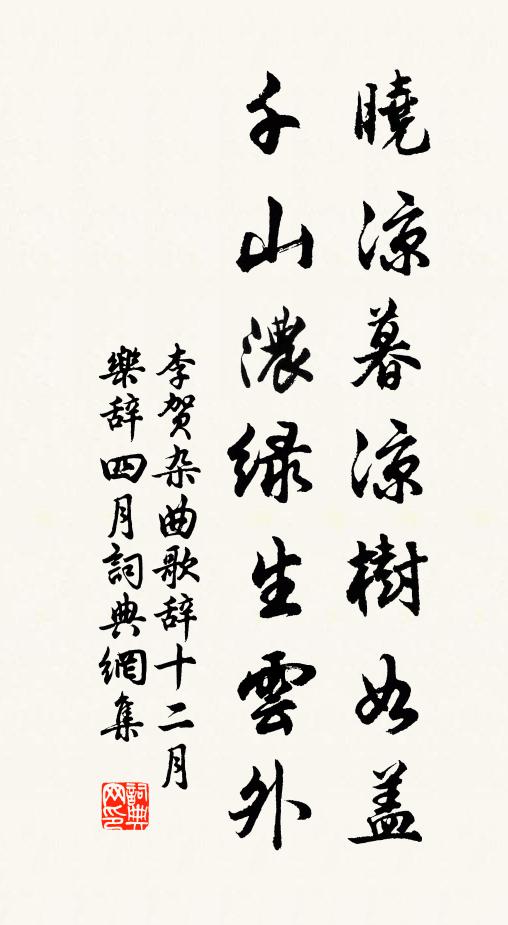 曉涼暮涼樹如蓋
千山濃绿生雲外
李贺杂曲歌辞十二月
樂辞四月詞典網集
詞典
网印